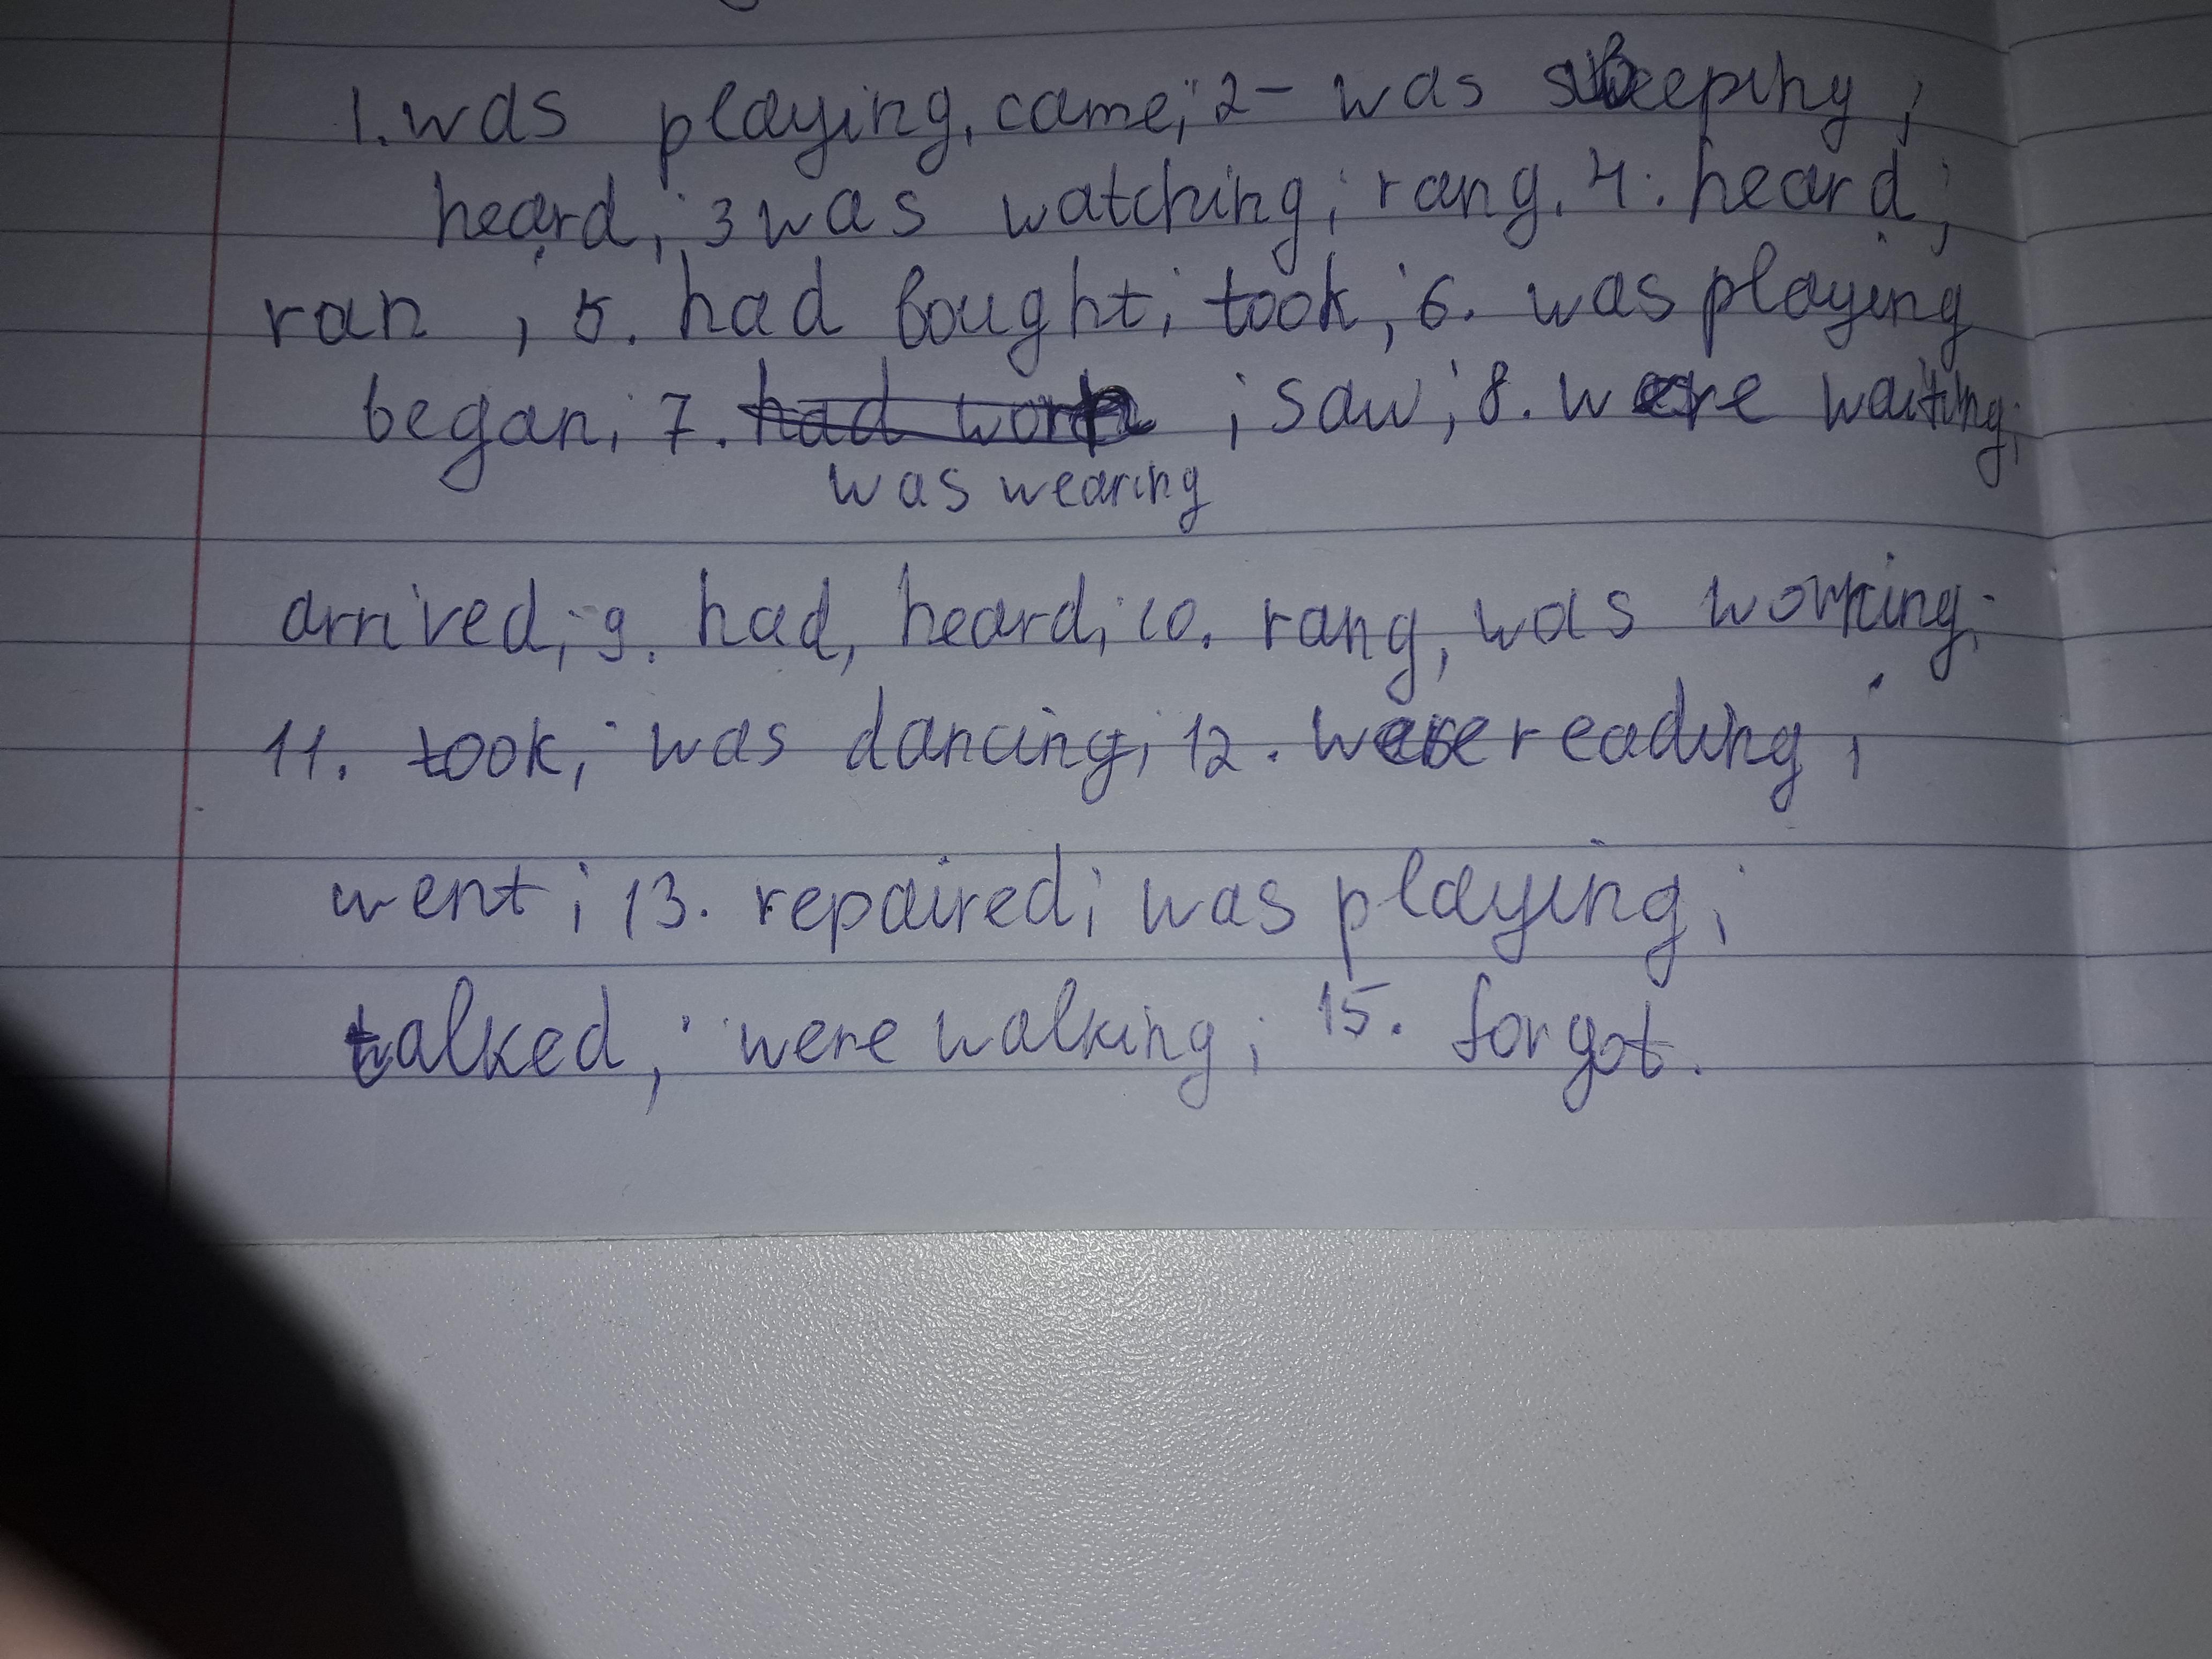 1. was playing, came; 2 - was sleeping;
heard; 3 was watching; rang. 4. heard;
ran, 5. had bought; took; 6. was playing
began; 7. had worn ; saw; 8. were waiting;
was wearing
arrived; 9. had, heard; 10. rang, was working;
11. took; was dancing; 12. were reading;
went; 13. repaired; was playing;
talked; were walking; 15. forgot.